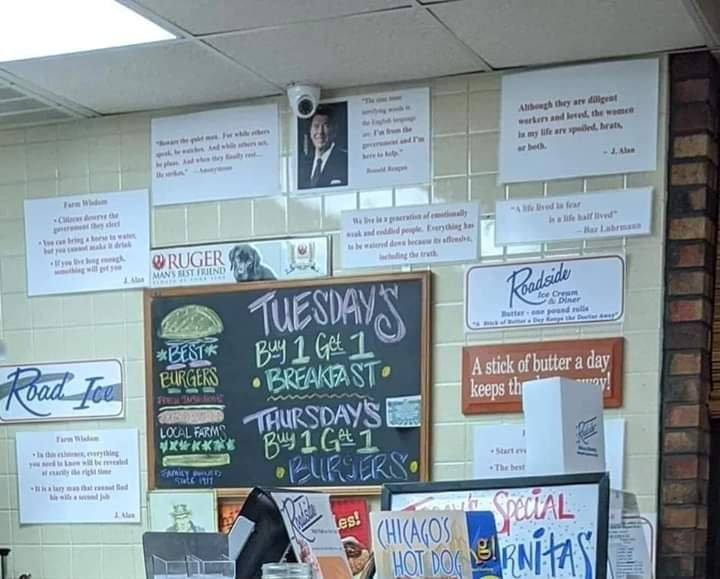 "Beware the quiet man. For while others
speak, he watches. And while others act,
he plans. And when they finally rest...
He strikes." - Anonymous
"The nine most
terrifying words in
the English language
are: I'm from the
government and I'm
here to help."
Ronald Reagan
Although they are diligent
workers and loved, the women
in my life are spoiled, brats,
or both.
- J. Alan
Farm Wisdom
• Citizens deserve the
government they elect
• You can bring a horse to water,
but you cannot make it drink
• If you live long enough,
something will get you
J. Alan
We live in a generation of emotionally
weak and coddled people. Everything has
to be watered down because its offensive,
including the truth.
"A life lived in fear
is a life half lived"
- Baz Luhrmann
RUGER
MAN'S BEST FRIEND
Roadside
Ice Cream
& Diner
Butter - one pound rolls
"A Stick of Butter a Day Keeps the Doctor Away"
TUESDAY'S
Buy 1 Get 1
• BREAKFAST •
THURSDAY'S
Buy 1 Get 1
• BURGERS •
*BEST*
BURGERS
LOCAL FARMS
FAMILY OWNED
SINCE 1977
A stick of butter a day
keeps th way!
Road Ice
Farm Wisdom
• In this existence, everything
you need to know will be revealed
at exactly the right time
• It is a lazy man that cannot find
his wife a second job
J. Alan
• Start ev
• The best
es!
CHICAGO'S
HOT DOG
Special
RNITAS